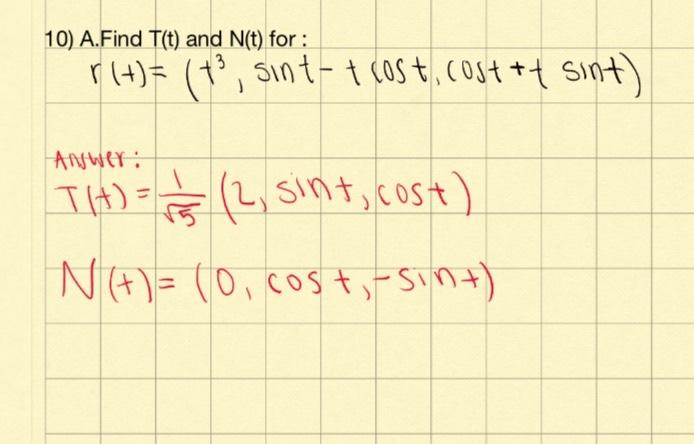 10) A.Find T(t) and N(t) for :
r(t)= (t³, sint - t cost, cost + t sint)
Answer:
T(t) = 1/√5 (2, sint, cost)
N(t) = (0, cost, -sint)